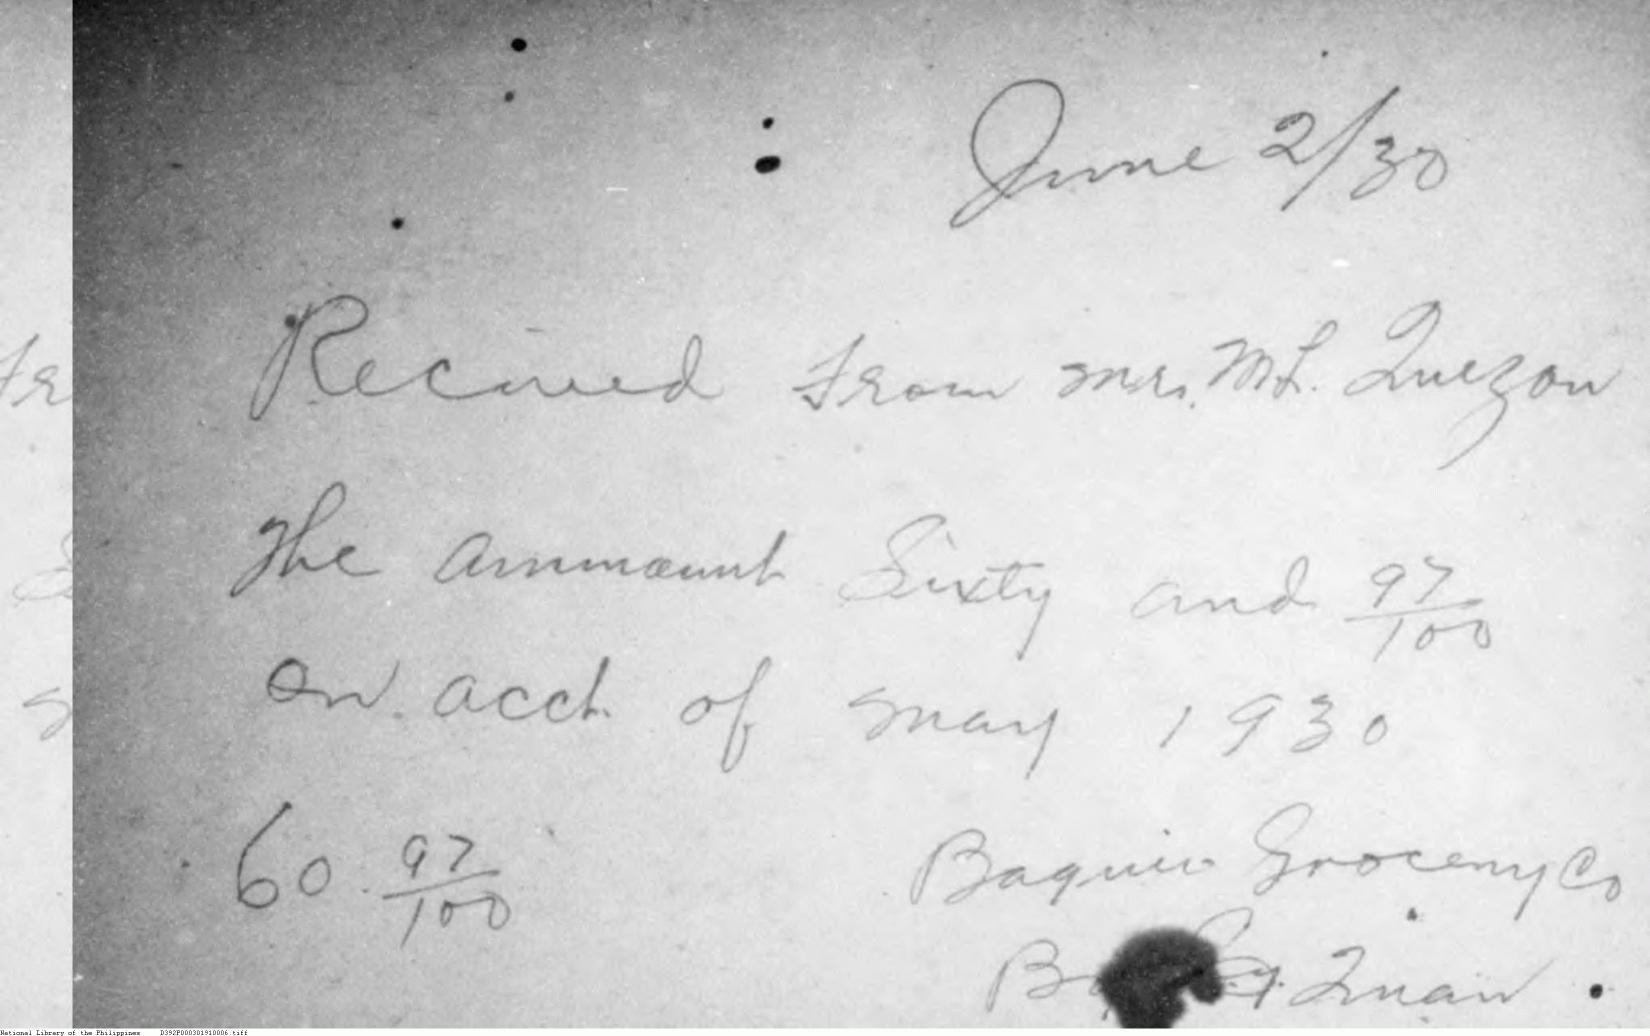 June 2/30
Recived from Mrs. M L. Quezon
The ammount Sixty and 97/100
on acct. of May 1930
60. 97/100
Baguio Grocery Co
Quan
National Library of the Philippines D392P000301910006.tiff